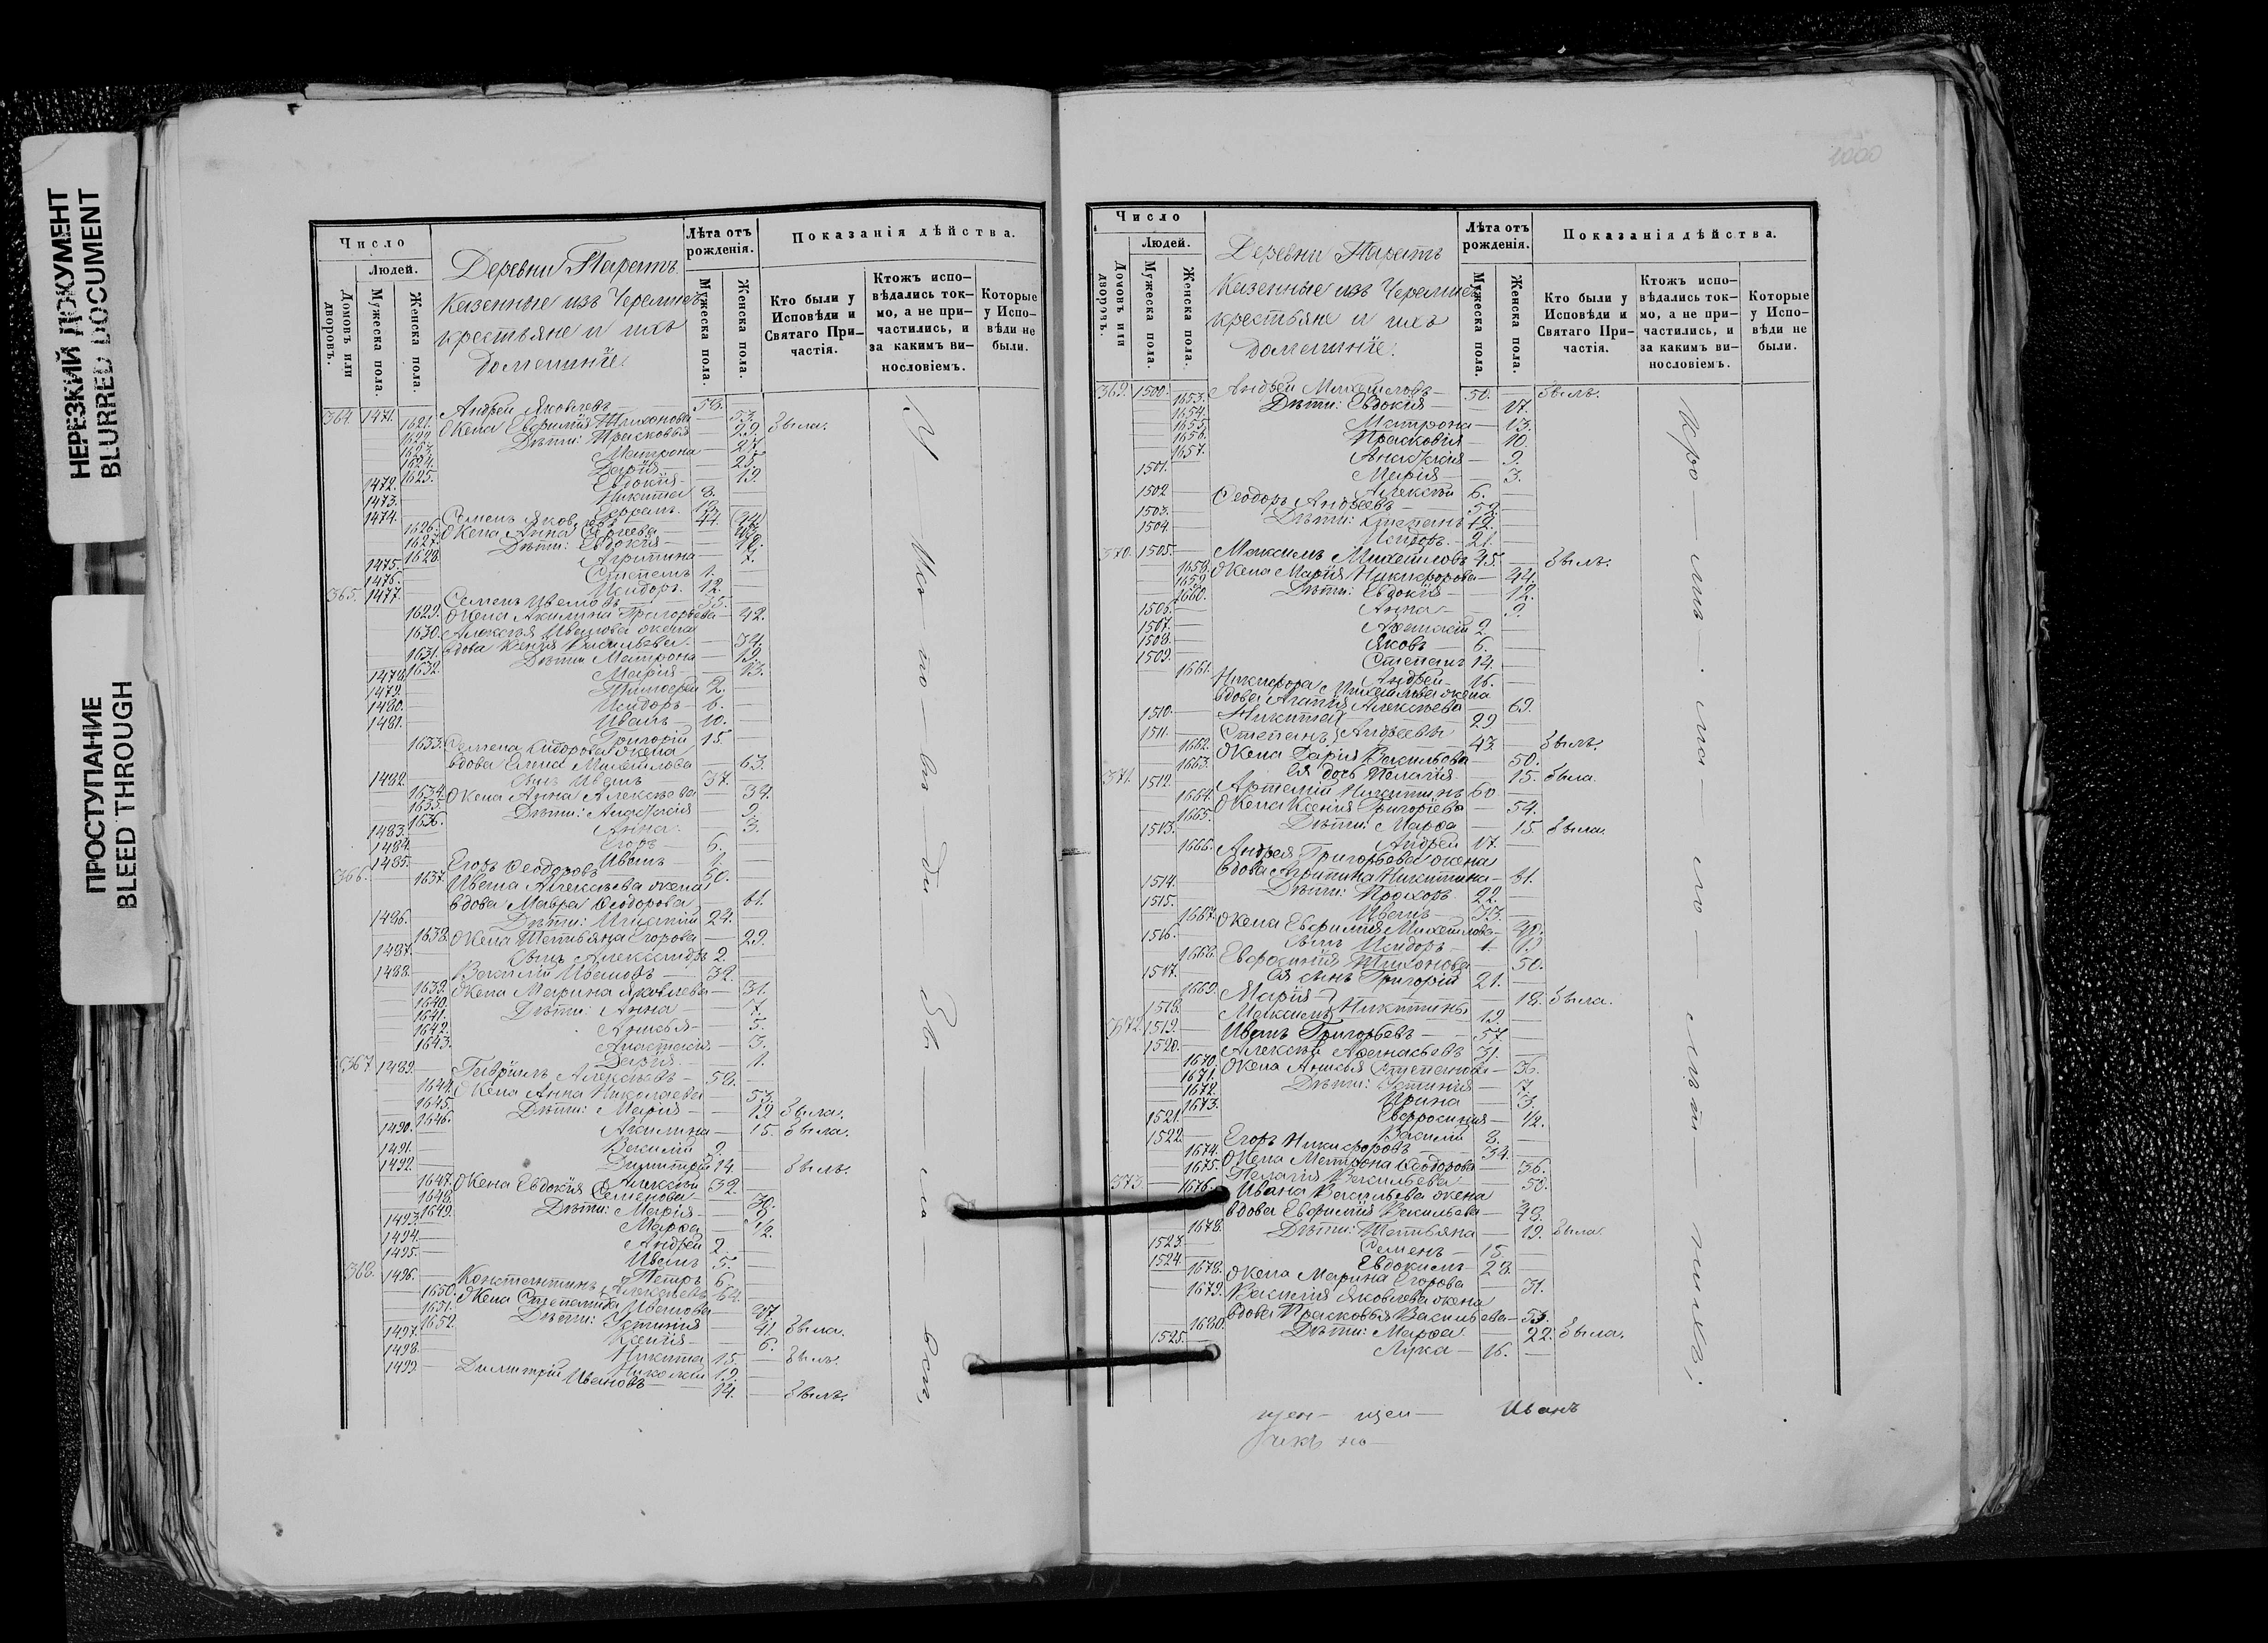 НЕРЕЗКИЙ ДОКУМЕНТ
BLURRED DOCUMENT
ПРОСТУПАНИЕ
BLEED THROUGH
Число
Людей.
Домовъ или дворовъ.
Мужеска пола.
Женска пола.
Деревни Паратъ
Казенные изъ Черемисъ
крестьяне и ихъ
домашніе.
Лѣта отъ рожденія.
Мужеска пола.
Женска пола.
Показанія дѣйства.
Кто были у Исповѣди и Святаго Причастія.
Ктожъ исповѣдались токмо, а не причастились, и за какимъ винословіемъ.
Которые у Исповѣди не были.
364. 1471. Андрей Яковлевъ 58.
1621. Жена Евфимія Тихонова 53. Была.
1622. Дѣти: Прасковья 29.
1623. Матрона 27.
1624. Дарія 25.
1625. Евдокія 19.
1472. Никита 8.
1473.
1474. Семенъ Яковлевъ 44.
1626. Жена Анна Сергеева
1627. Дѣти: Евдокія
1628. Агрипина 7.
1475. Степанъ 1.
1476. Исидоръ 12.
365. 1477. Семенъ Ивановъ
1629. Жена Акилина Григорьева 42.
1630. Алексѣя Иванова жена
вдова Ксенія Васильева 34.
1631. Дѣти Матрона 19.
1632. Марія 13.
1478. Тимофей 2.
1479. Исидоръ 6.
1480. Иванъ 10.
1481. Григорій 15.
1633. Семена Сидорова жена
вдова Елена Михайлова 63.
1482. Сынъ Иванъ 37.
1634. Жена Анна Алексѣева 34.
1635. Дѣти: Анастасія 9.
1636. Анна 3.
1483. Егоръ 6.
1484. Иванъ 1.
366. 1485. Егоръ Феодоровъ 60.
1637. Ивана Алексѣева жена
вдова Мавра Феодорова 61.
1486. Дѣти: Игнатій 24.
1638. Жена Татьяна Егорова 29.
1487. Сынъ Александръ 2.
1488. Василій Ивановъ 32.
1639. Жена Марина Яковлева 31.
1640. Дѣти: Анна 7.
1641. Анисья 5.
1642. Анастасія 3.
1643. Дарія 1.
367 1489. Гавріилъ Алексѣевъ 58.
1644. Жена Анна Николаева 53.
1645. Дѣти: Марія 19 Была.
1646. Акилина 15. Была.
1490. Василій 9.
1491. Димитрій 14 Былъ.
1492. Алексѣй 32.
1647. Жена Евдокія Семенова
1648. Дѣти: Марія
1649. Марфа 1/2.
1493. Андрей 2.
1494. Иванъ 5.
1495. Петръ 6.
368. 1496. Константинъ Алексѣевъ 64.
1650. Жена Степанида Иванова
1651. Дѣти: Устинія 21. Была.
1652. Ксенія 6.
1497. Никита 15. Былъ.
1498. Николай 19.
1499 Димитрій Ивановъ 14. Былъ.
1000
Число
Людей.
Домовъ или дворовъ.
Мужеска пола.
Женска пола.
Деревни Паратъ
Казенные изъ Черемисъ
крестьяне и ихъ
домашніе.
Лѣта отъ рожденія.
Мужеска пола.
Женска пола.
Показанія дѣйства.
Кто были у Исповѣди и Святаго Причастія.
Ктожъ исповѣдались токмо, а не причастились, и за какимъ винословіемъ.
Которые у Исповѣди не были.
369. 1500. Андрей Михайловъ 50. Былъ.
1653. Дѣти: Евдокія 17.
1654. Матрона 13.
1655. Прасковія 10.
1656. Анастасія 9.
1657. Марія 3.
1501. Алексѣй 6.
1502 Феодоръ Андреевъ 52.
1503. Дѣти: Степанъ 12.
1504. Исидоръ 21.
370. 1505. Максимъ Михайловъ 45. Былъ.
1658. Жена Марія Никифорова 44.
1659. Дѣти: Евдокія 12.
1660. Анна 9.
1506. Афанасій 2.
1507. Яковъ 6.
1508. Степанъ 14.
1509. Андрей 16.
1661. Никифора Михайлова жена
вдова Агапія Алексѣева 69.
1510. Никита 29
1511. Степанъ Андреевы 43. Былъ.
1662. Жена Дарія Васильева 50.
1663. Ея дочь Пелагія 15. Была.
371. 1512. Артемій Никитинъ 60
1664. Жена Ксенія Григорьева 54.
1665. Дѣти: Марфа 15. Была.
1513. Андрей 17.
1666. Андрея Григорьева жена
вдова Агрипина Никитина 61.
1514. Дѣти: Прохоръ 22.
1515. Иванъ 33.
1667. Жена Евфимія Михайлова
1516. Сынъ Исидоръ 1.
1668. Евфросинія Тихонова 50.
1517. Ея сынъ Григорій 21.
1669. Марія 18. Была.
1518. Максимъ Никитины 19.
372. 1519. Иванъ Григорьевъ 57.
1520. Алексѣй Афанасьевъ 31.
1670. Жена Анисья Степанова 36.
1671. Дѣти: Устинія 7.
1672. Ирина 3.
1673. Евфросинія 1/2.
1521. Василій 8.
1522. Егоръ Никифоровъ 34.
1674. Жена Матрона Феодорова 36.
1675. Пелагія Васильева 50.
373 1676. Ивана Васильева жена
вдова Евфимія Васильева 48.
1678. Дѣти: Татьяна 19. Была.
1523. Семенъ 15.
1524. Евдокимъ 28.
1678. Жена Марина Егорова 31.
1679. Василія Яковлева жена
вдова Прасковья Васильева 53.
1680. Дѣти: Марфа 22. Была.
1525. Лука 16.
Иванъ